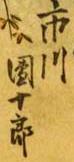 市川團十郎